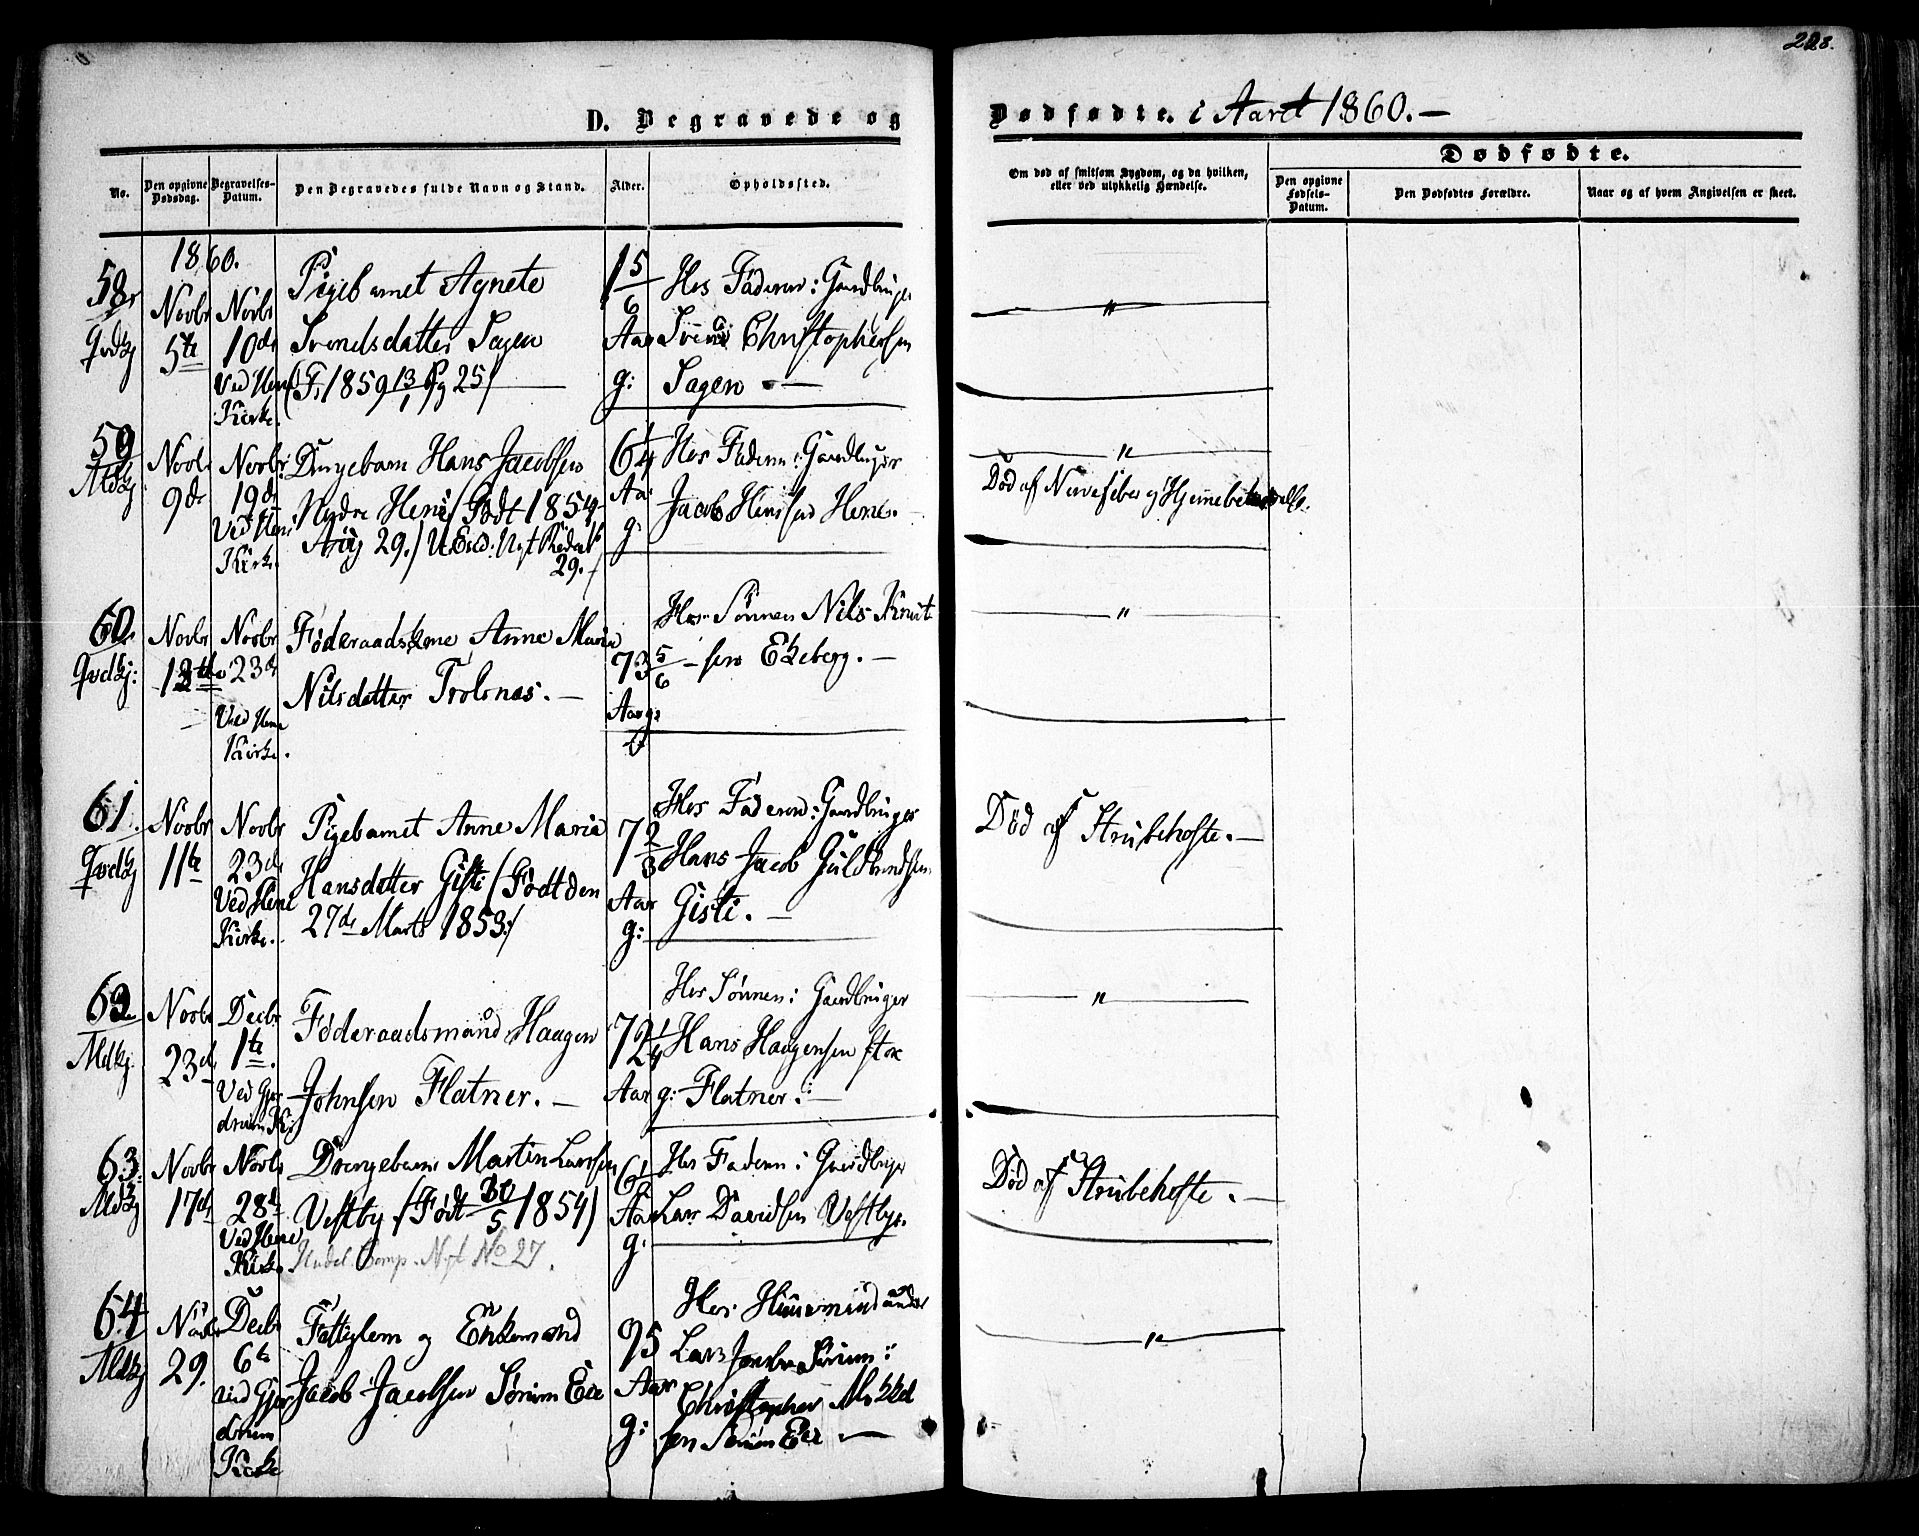 228.
D. Begravede og Dødfødte. i Aaret 1860. —
No.
Den opgivne Dødsdag.
Begravelses-Datum.
Den Begravedes fulde Navn og Stand.
Alder.
Opholdssted.
Om død af smitsom Sygdom, og da hvilken, eller ved ulykkelig Hændelse.
Dødfødte.
Den opgivne Fødsels-Datum.
Den Dødfødtes Forældre.
Naar og af hvem Angivelsen er skeet.
1860.
58
Novbr 5te
Novbr 10de
Ved Heni Kirke.
Pigebarnet Agnete
Svendsdatter Sagen
(F. 1859 13/1 Pg 25)
1 5/6 Aar g:
Hos Faderen: Gaardbruger
Svend Christophersen
Sagen —
"
59
Novbr 9de
Novbr 19de
Ved Heni Kirke.
Drengebarn Hans Jacobsen
Nydre Heni (Født 1854
Aug 29.)
29.
6 1/4 Aar g:
Hos Faderen: Gaardbruger
Jacob Hensen Hene. —
"
Død af Nervefeber og Hjernebetændelse.
60
Novbr
Novbr 23de
Ved Hene Kirke.
Føderaadskone Anne Maria
Nilsdatter Trolsnæs. —
73 5/6 Aar g:
Hos Sønnen Nils Knut
-sen Ekeberg. —
"
61.
Novbr 11te
Novbr 23de
Ved Hene Kirke.
Pigebarnet Anne Maria
Hansdatter Gisti (Født den
27de Marts 1853)
7 2/3 Aar g:
Hos Faderen: Gaardbruger
Hans Jacob Guldbrandsen
Gisti. —
Død af Strubehoste. —
62
Aldkj.
Novbr 23de
Decbr 1te.
Ved Gjer
drum K.
Føderaadsmand Haagen
Johnsen Flatner. —
72 1/4 Aar g:
Hos Sønnen: Gaardbruger
Hans Haagensen store
Flatner. —
"
63.
Novbr 17de
Novbr 28de
Ved Hene Kirke.
Drengebarn Martin Larsen
Vestby (Født 30/5 1854)
No 27.
6 1/2 Aar g:
Hos Faderen: Gaardbruger
Lars Davidsen Vestby.
Død af Strubehoste. —
64
Aldkj
Novbr 29.
Decbr 6te
ved Gjer
drum
Kirke
Fattiglem og Enkemand
Jacob Jacobsen Sørum Eie
95 Aar g:
Hos Huusmand under
Lars Sørum:
Christopher
sen Sørum Eie —
"